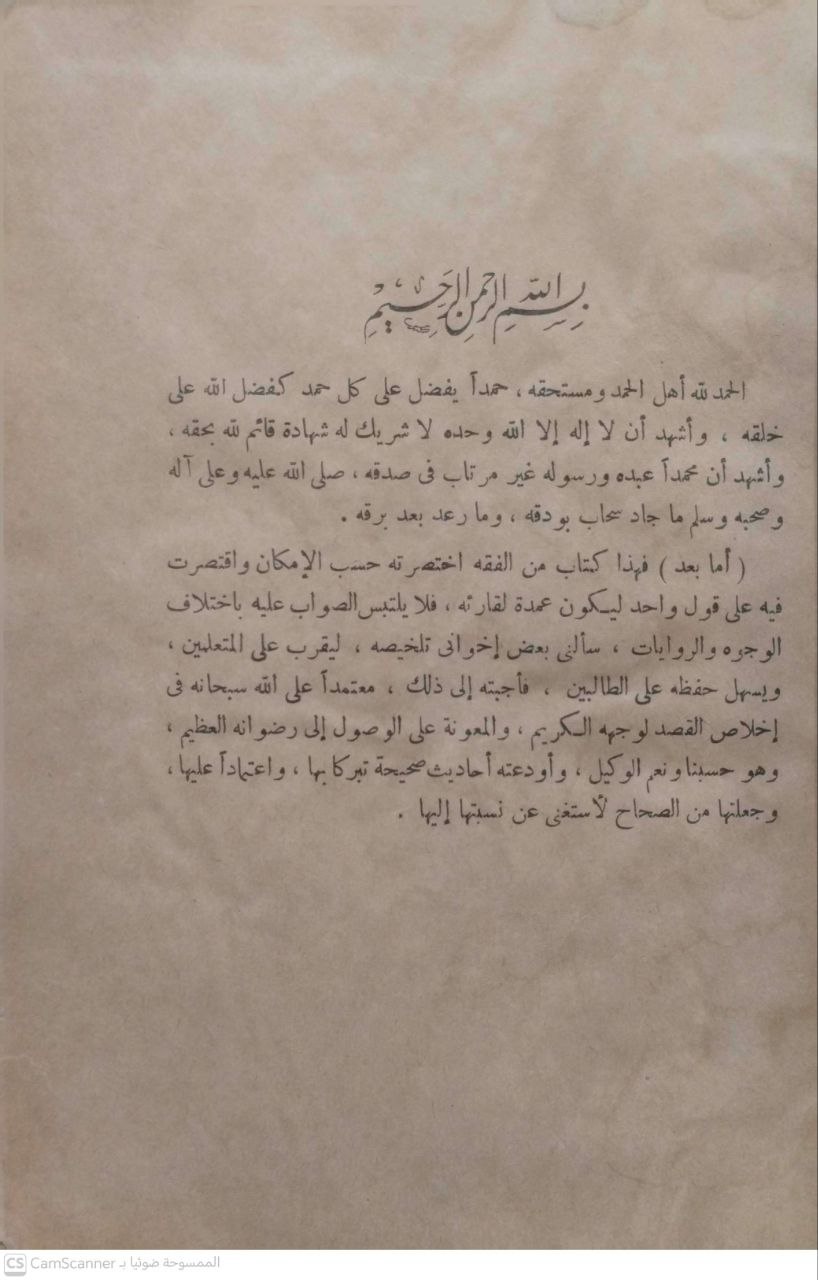 بسم الله الرحمن الرحيم
الحمد لله أهل الحمد ومستحقه ، حمداً يفضل على كل حمد كفضل الله على
خلقه ، وأشهد أن لا إله إلا الله وحده لا شريك له شهادة قائم لله بحقه ،
وأشهد أن محمداً عبده ورسوله غير مرتاب فى صدقه ، صلى الله عليه وعلى آله
وصحبه وسلم ما جاد سحاب بودقه ، وما رعد بعد برقه .
( أما بعد ) فهذا كتاب من الفقه اختصرته حسب الإمكان واقتصرت
فيه على قول واحد ليكون عمدة لقارئه ، فلا يلتبس الصواب عليه باختلاف
الوجوه والروايات ، سألنى بعض إخوانى تلخيصه ، ليقرب على المتعلمين ،
ويسهل حفظه على الطالبين ، فأجبته إلى ذلك ، معتمداً على الله سبحانه فى
إخلاص القصد لوجهه الكريم ، والمعونة على الوصول إلى رضوانه العظيم ،
وهو حسبنا ونعم الوكيل ، وأودعته أحاديث صحيحة تبركا بها ، واعتماداً عليها ،
وجعلتها من الصحاح لأستغنى عن نسبتها إليها .
CS CamScanner الممسوحة ضوئيا بـ